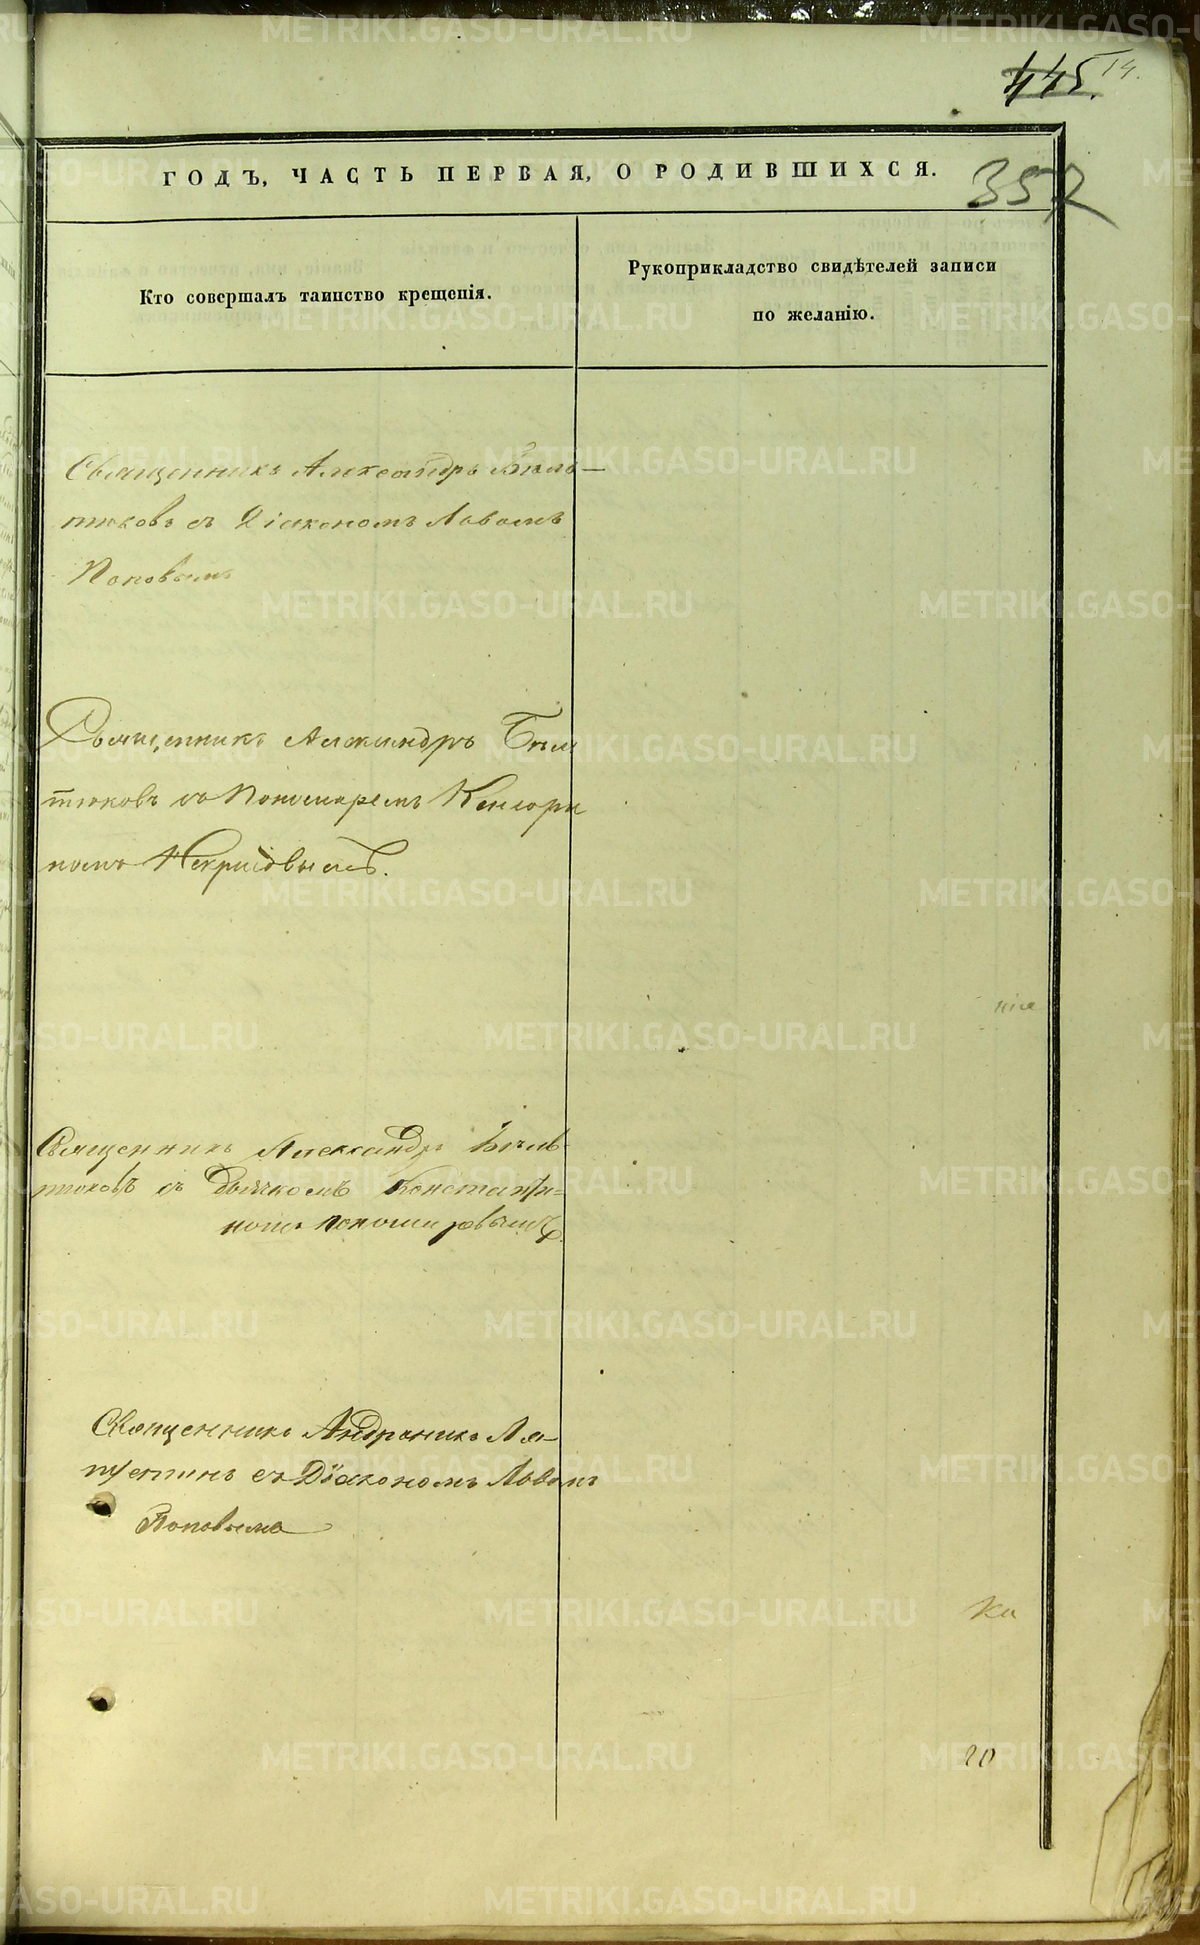 445. 14.
ГОДЪ, ЧАСТЬ ПЕРВАЯ, О РОДИВШИХСЯ.
357
Кто совершалъ таинство крещенія.
Рукоприкладство свидѣтелей записи
по желанію.
Священникъ Александръ Бѣль-
тюковъ съ Діакономъ Львомъ
Поповымъ
Священникъ Александръ Бѣль
тюковъ съ Пономаремъ Кенсори
номъ Некрасовымъ.
Священникъ Александръ Бѣль-
тюковъ съ Дьячкомъ Константи=
номъ Пономаревымъ.
Священникъ Андроникъ Ля-
пустинъ съ Діакономъ Львомъ
Поповымъ
20
METRIKI.GASO-URAL.RU